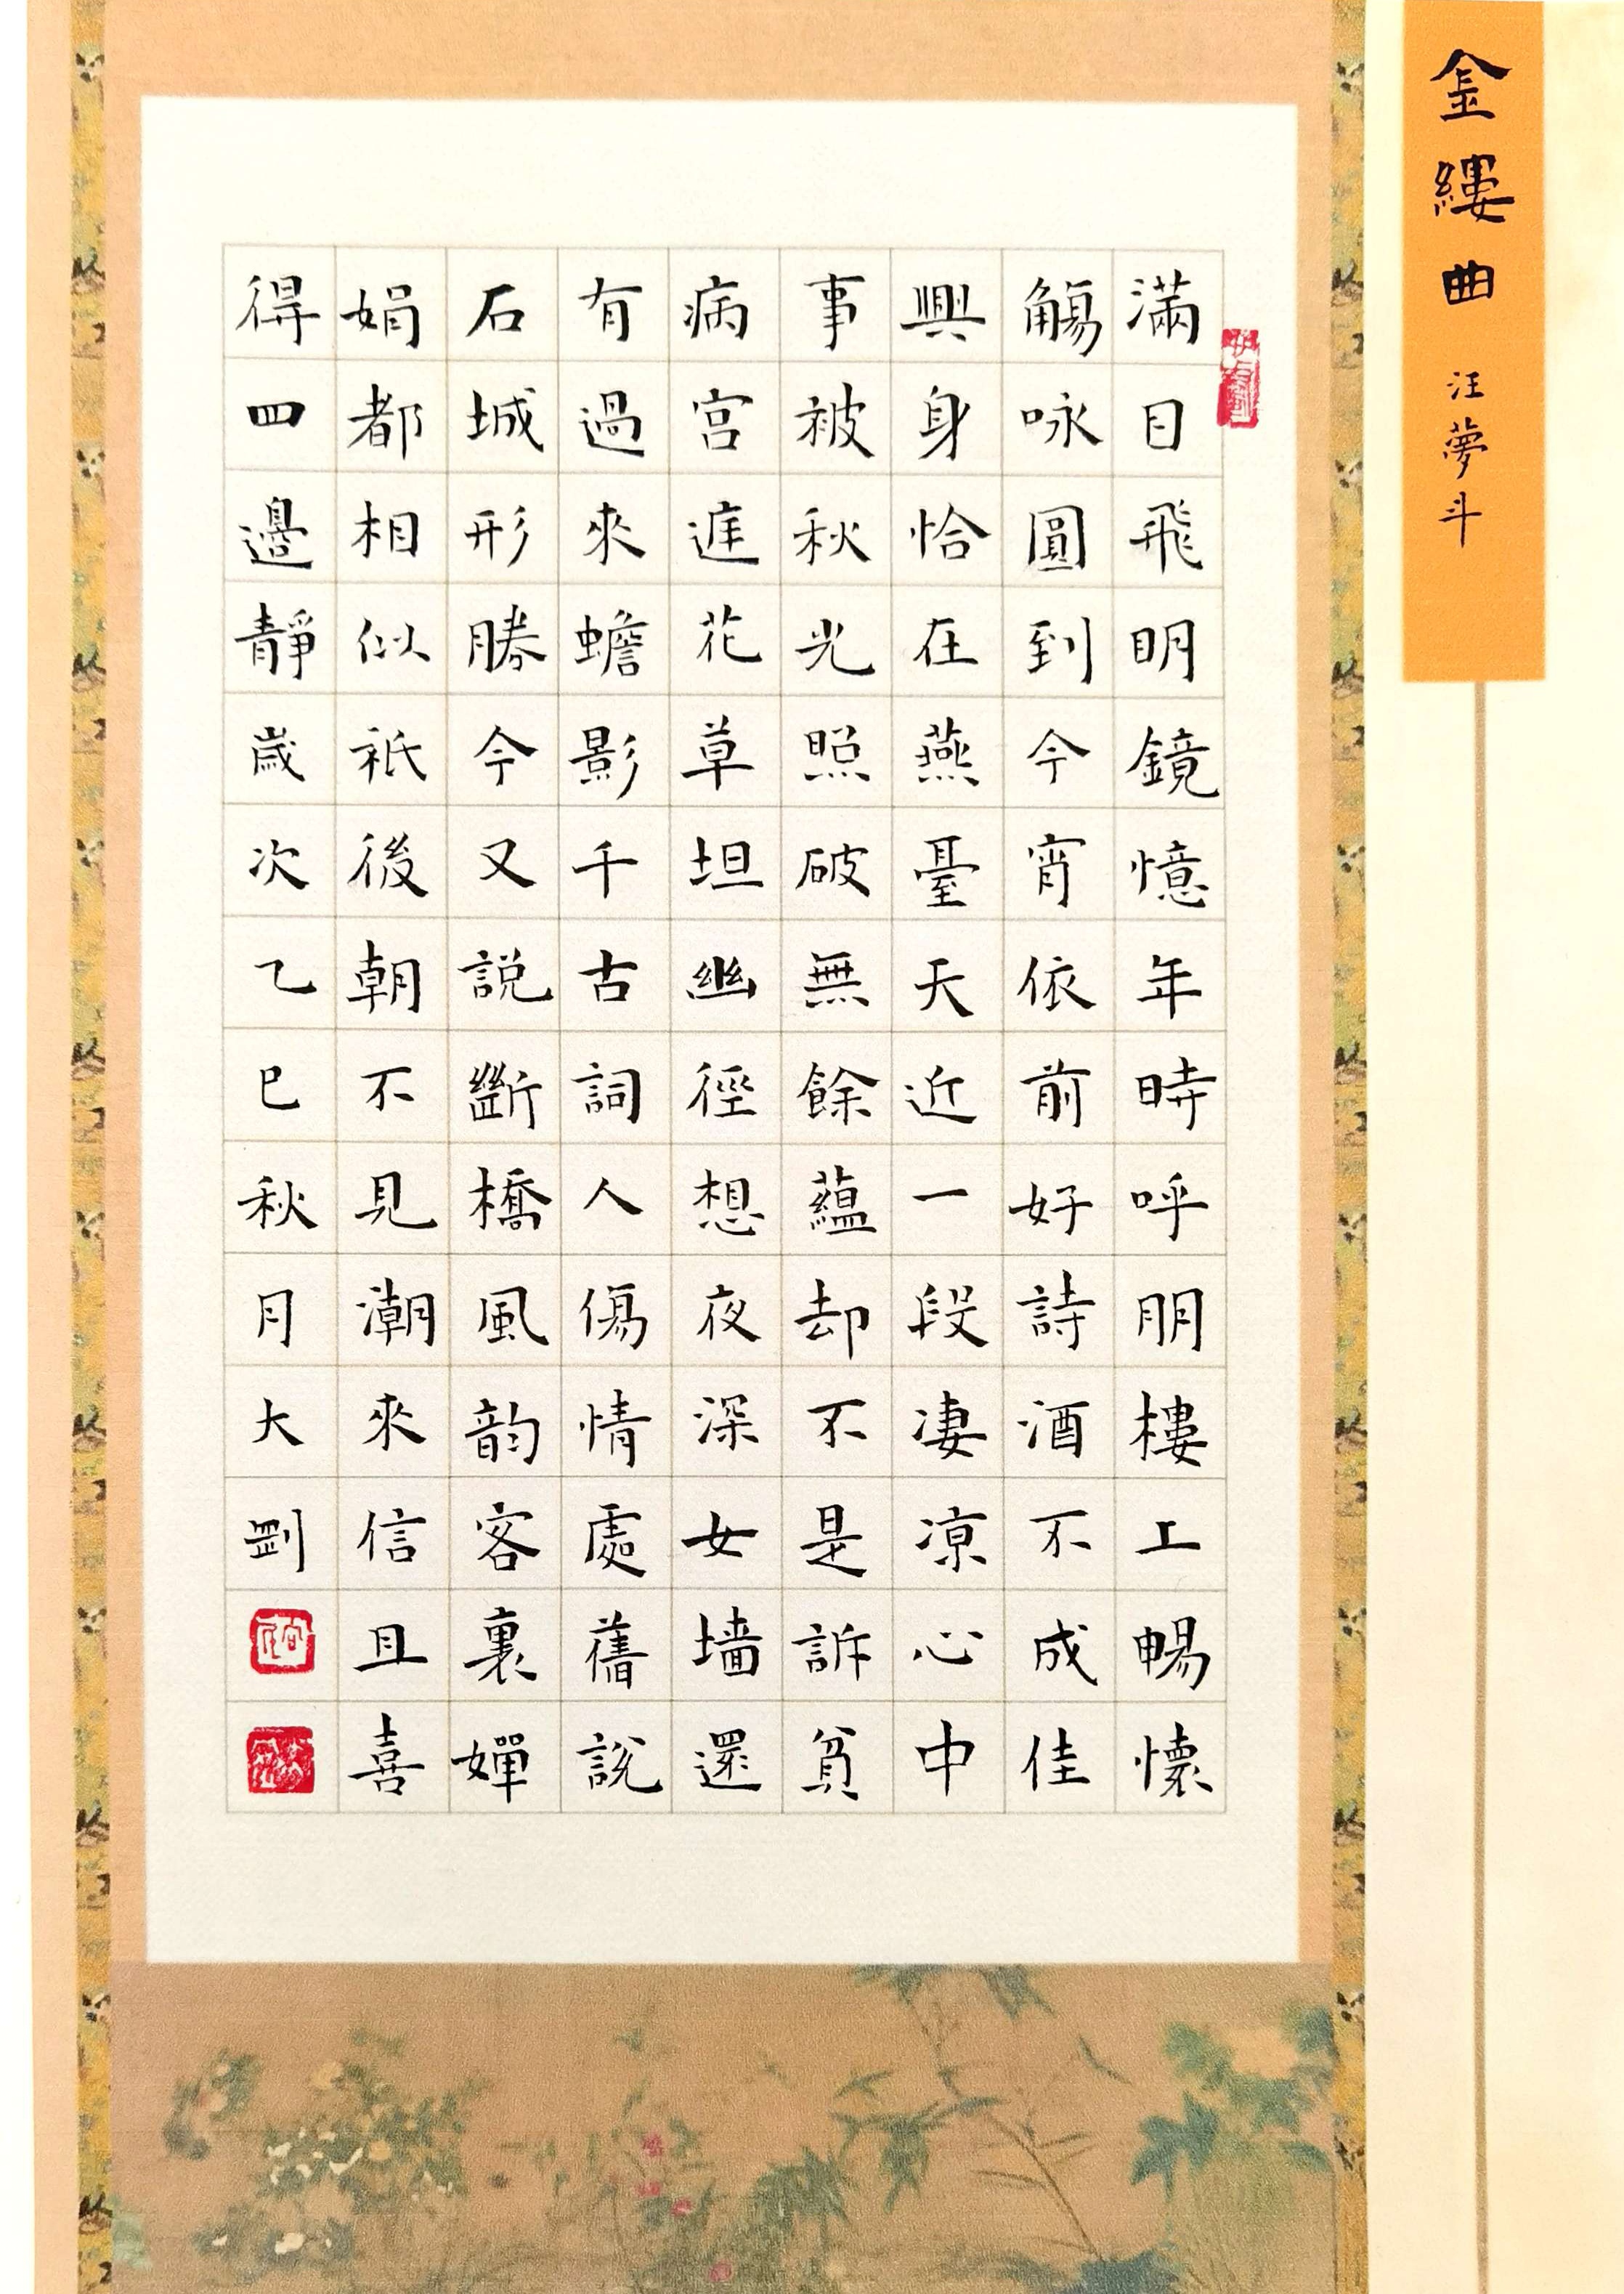 金縷曲 汪夢斗
滿目飛明鏡憶年時呼朋樓上暢懷
觴咏圓到今宵依前好詩酒不成佳
興身恰在燕臺天近一段淒凉心中
事被秋光照破無餘蘊却不是訴貧
病宮庭花草坦幽徑想夜深女墻還
有過來蟾影千古詞人傷情處舊說
石城形勝今又説斷橋風韵客裏嬋
娟都相似祇後朝不見潮來信且喜
得四邊靜歲次乙巳秋月大劉